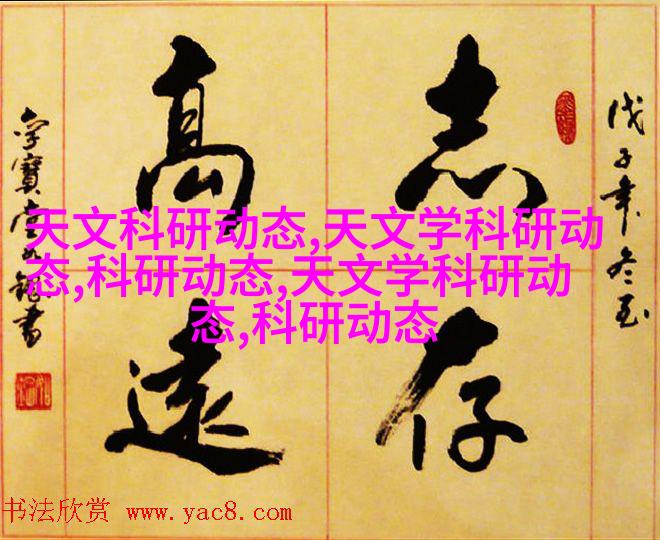 志存
高遠
戊子年冬至
学寶堂
書
天文科研动态,天文学科研动
态,科研动态,天文学科研动
态,科研动态
书法欣赏 www.yac8.com